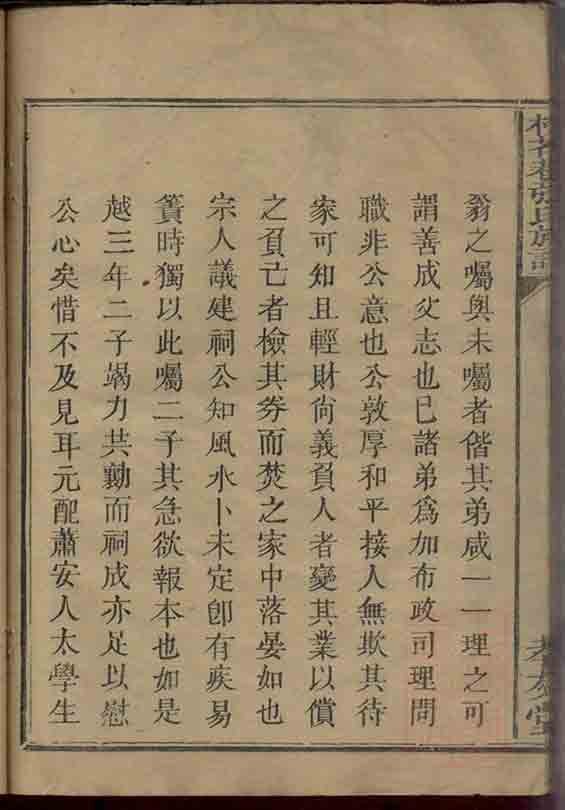 氏族
孝友堂
翁之囑與未囑者偕其弟咸一一理之可
謂善成父志也已諸弟爲加布政司理問
職非公意也公敦厚和平接人無欺其待
家可知且輕財尙義負人者變其業以償
之負亡者檢其券而焚之家中落晏如也
宗人議建祠公知風水卜未定卽有疾易
簀時獨以此囑二子其急欲報本也如是
越三年二子竭力共勷而祠成亦足以慰
公心矣惜不及見耳元配蕭安人太學生